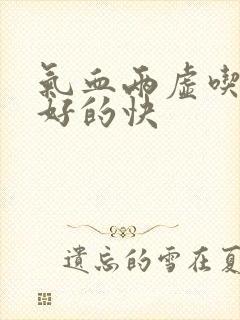 氣血兩虛喫
好的快
遺忘的雪在夏